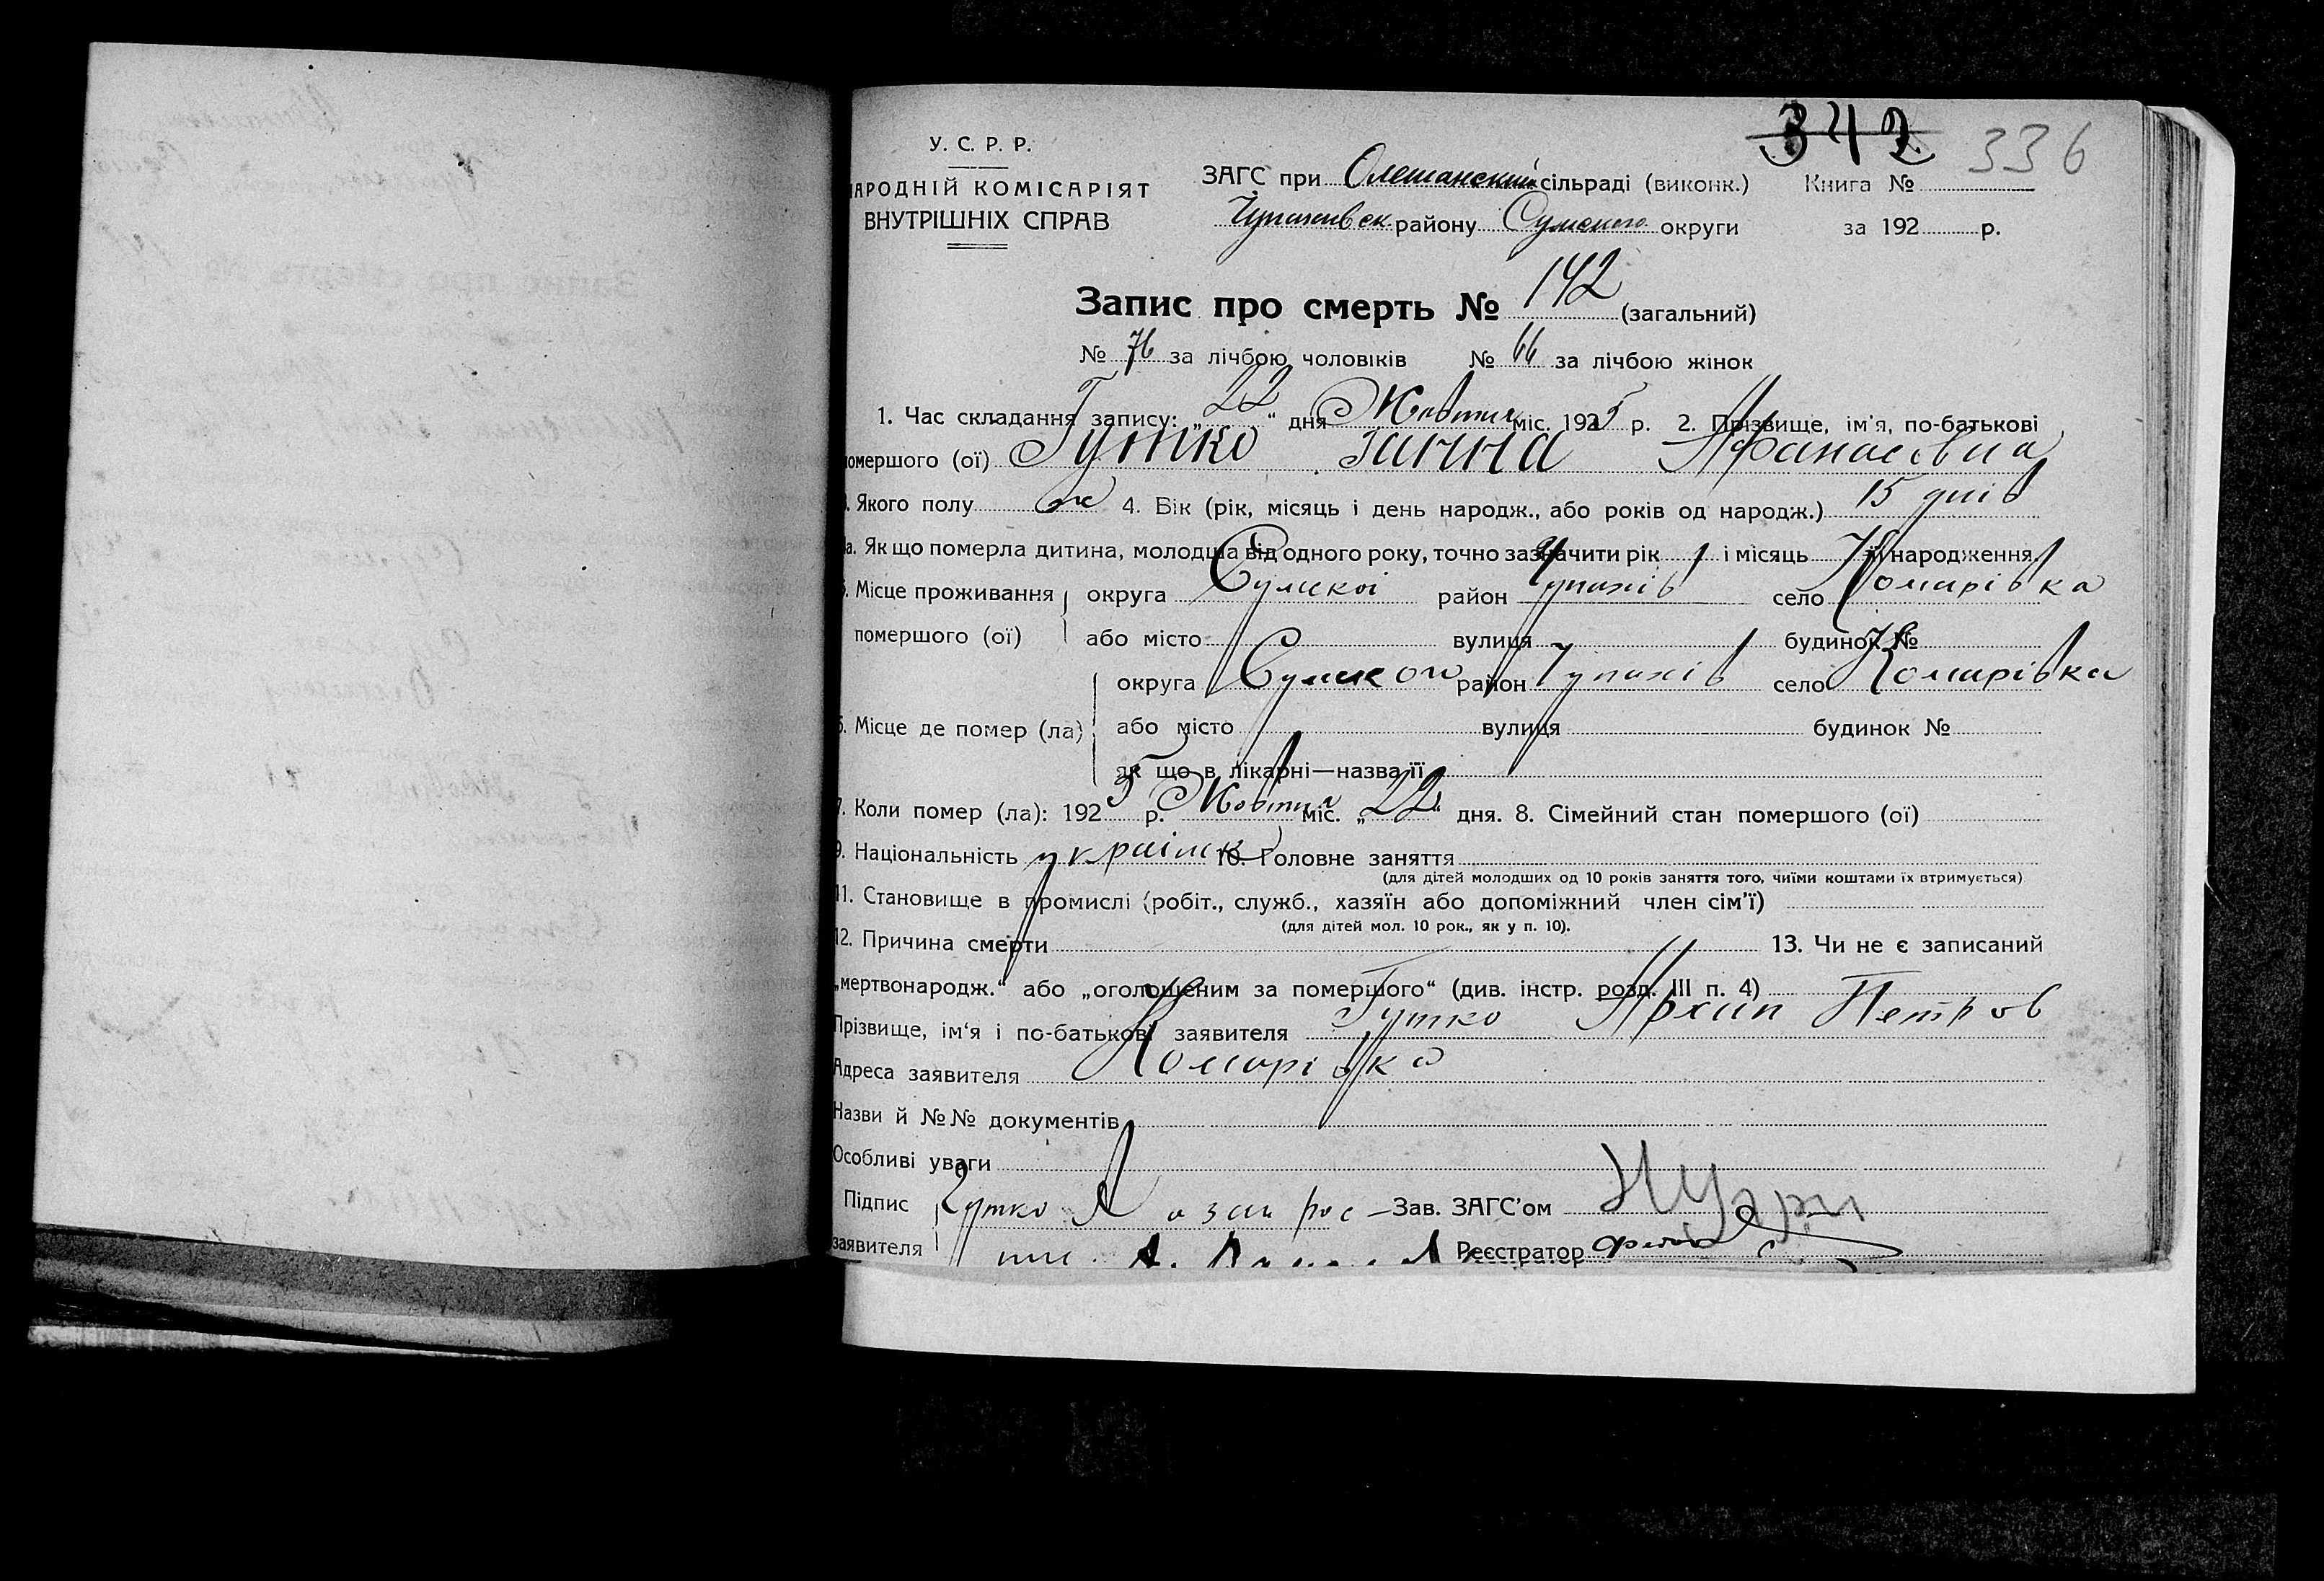 342 336
У. С. Р. Р.
НАРОДНІЙ КОМІСАРІЯТ
ВНУТРІШНІХ СПРАВ
ЗАГС при Олешанский сільраді (виконк.) Книга №
Чупахивск району Сумского округи за 192 р.
Запис про смерть № 142 (загальний)
№ 76 за лічбою чоловіків № 66 за лічбою жінок
1. Час складання запису: „22“ дня Жовтня міс. 1925 р. 2. Прізвище, ім'я, по-батькові
помершого (ої) Гутко Ганна Афанасівна
3. Якого полу ж 4. Вік (рік, місяць і день народж., або років од народж.) 15 днів
а. Як що померла дитина, молодша від одного року, точно зазначити рік і місяць її народження
5. Місце проживання округа Сумскої район Чупахів село Комарівка
помершого (ої) або місто вулиця будинок №
округа Сумского район Чупахів село Комарівка
6. Місце де помер (ла) або місто вулиця будинок №
як що в лікарні—назва її
7. Коли помер (ла): 1925 р. Жовтня міс. „22“ дня. 8. Сімейний стан помершого (ої)
9. Національність україн 10. Головне заняття
(для дітей молодших од 10 років заняття того, чиїми коштами їх втримується)
11. Становище в промислі (робіт., служб., хазяїн або допоміжний член сім'ї)
(для дітей мол. 10 рок., як у п. 10).
12. Причина смерти 13. Чи не є записаний
„мертвонародж.“ або „оголошеним за помершого“ (див. інстр. розд. III п. 4)
Прізвище, ім'я і по-батькові заявителя Гутко Архип Петров
Адреса заявителя Комарівка
Назви й №№ документів
Особливі уваги
Підпис Гутко А Зав. ЗАГС'ом
заявителя Реєстратор